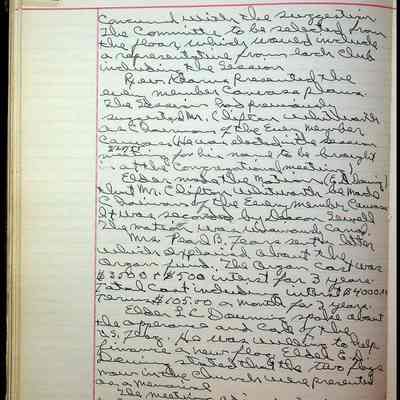 concurred with the suggestion
The Committee to be selected from
the floor, which would include
a representative from each Club
including the Session
Rev. Keans Presented the
every member Canvass plans.
The Session had previously
suggested Mr. Clifton Whitworth
as Chairman of the Every Member
Canvass. He was elected in the session
meeting for his name to be brought
in at the Congregational meeting
Elder made the Motion
that Mr. Clifton Whitworth be made
Chairman of the Every Member Canvass
It was seconded by Deacon Sewell
The motion was unanimously carried.
Mrs. Pearl B. Fears sent a letter
which explained about the
Organ fund. The Organ cost was
$3500 + $500 interest for 3 years.
Total cost including interest $4000.00
Terms $105.00 a month for 3 years.
Elder L.C. Downing spoke about
the appearance and care of the
U.S. Flag. He was willing to help
finance a new flag. Elder E.D.
Downing stated that the two flags
now in the Church were presented
as a Memorial
The meeting